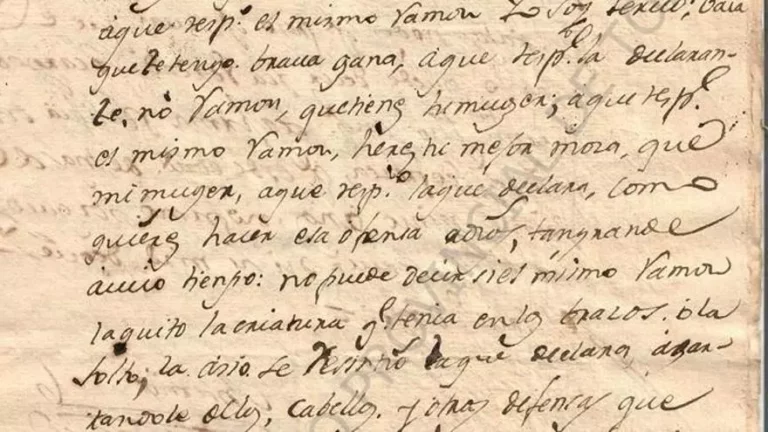 aque respº. el mismo Vamon
que te tengo. brava gana, aque respº. la declaran-
te, no Vamon, que tienes tu muger; aque respº.
el mismo Vamon, heres tu mejor moza, que
mi muger, aque respº. laque declara, como
quieres hacer esa ofensa a dios, tan grande
a cuio tiempo: no puede decir si el mismo Vamon
la quito la criatura q. tenia en los brazos. o la
solto; la asio. se resistio laque declara, agar-
randole de los, cabellos. y otras defensas que